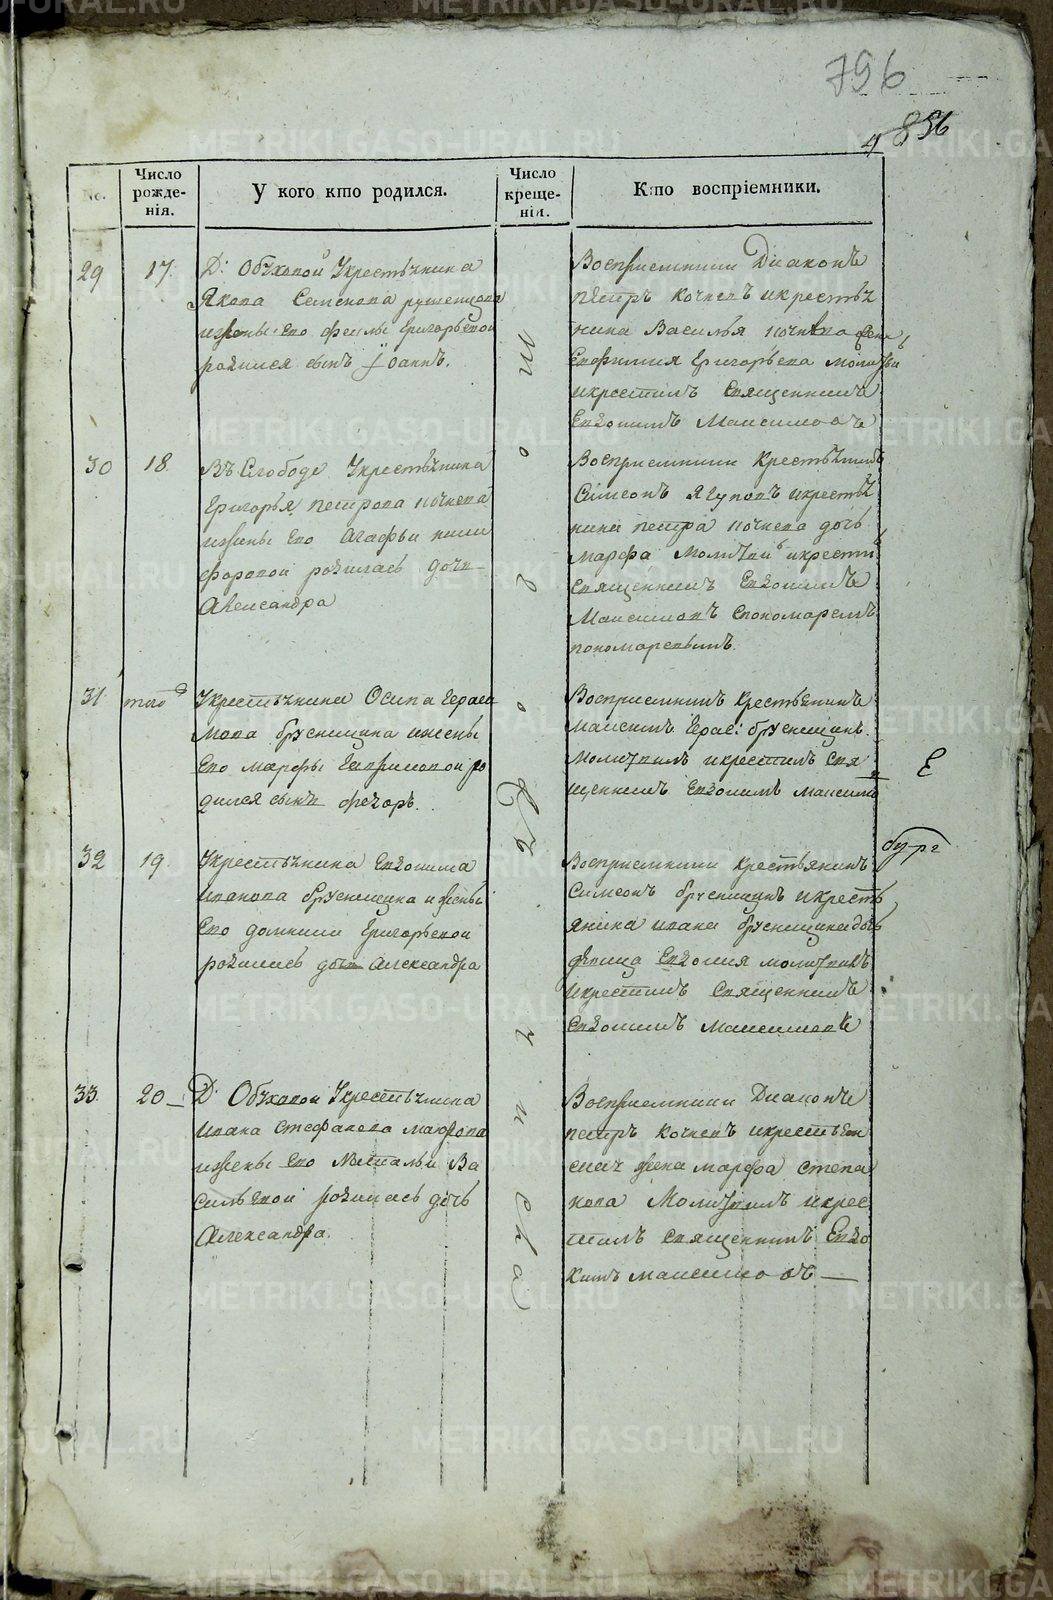 796
856
No.
Число рожде-нія.
У кого кто родился.
Число креще-нія.
Кто воспріемники.
29
17.
Д: Обуховой Укрестьянина
Якова Семенова
ижены Его Григорьевой
родился сынъ Іоаннъ.
Восприемники Диаконъ
петръ Кочневъ икрестья
нина Василья почнева
Григорьева
икрестилъ Священникъ
Евдокимъ Максимовъ
30
18.
Въ Слободе Укрестьянина
Григорья петрова почнева
ижены Его Агафьи ники
форовой родилась дочь
Александра
Восприемники Крестьянинъ
Симеонъ Ягуповъ икрестья
нина петра почнева дочь
марфа Молитвилъ икрестилъ
Священникъ Евдокимъ
Максимовъ Спономаремъ
пономаревымъ.
31
того
Укрестьянина Осипа Гераси
мова брусницина ижены
Его марфы ро
дился сынъ Федоръ.
Восприемникъ Крестьянинъ
максимъ Герас: брусницинъ.
молитвилъ икрестилъ Свя
щенникъ Евдокимъ Максимовъ
32
19.
Укрестьянина Евдокима
иванова брусницина ижены
Его домники Григорьевой
родилась дочь Александра
Восприемники Крестьянинъ
Симеонъ брусницинъ икресть
янина ивана брусницина дочь
девица Евдокия молитвилъ
икрестилъ Священникъ
Евдокимъ Максимовъ
33.
20
Д: Обуховой Укрестьянина
ивана Стефанова
ижены Его Наталья Ва
сильевой родилась дочь
Александра.
Восприемники Диаконъ
петръ Кочневъ икрестьян
жена марфа степа
нова Молитвилъ икрес
тилъ Священникъ Евдо
кимъ максимовъ
тогоже числа
METRIKI.GASO-URAL.RU